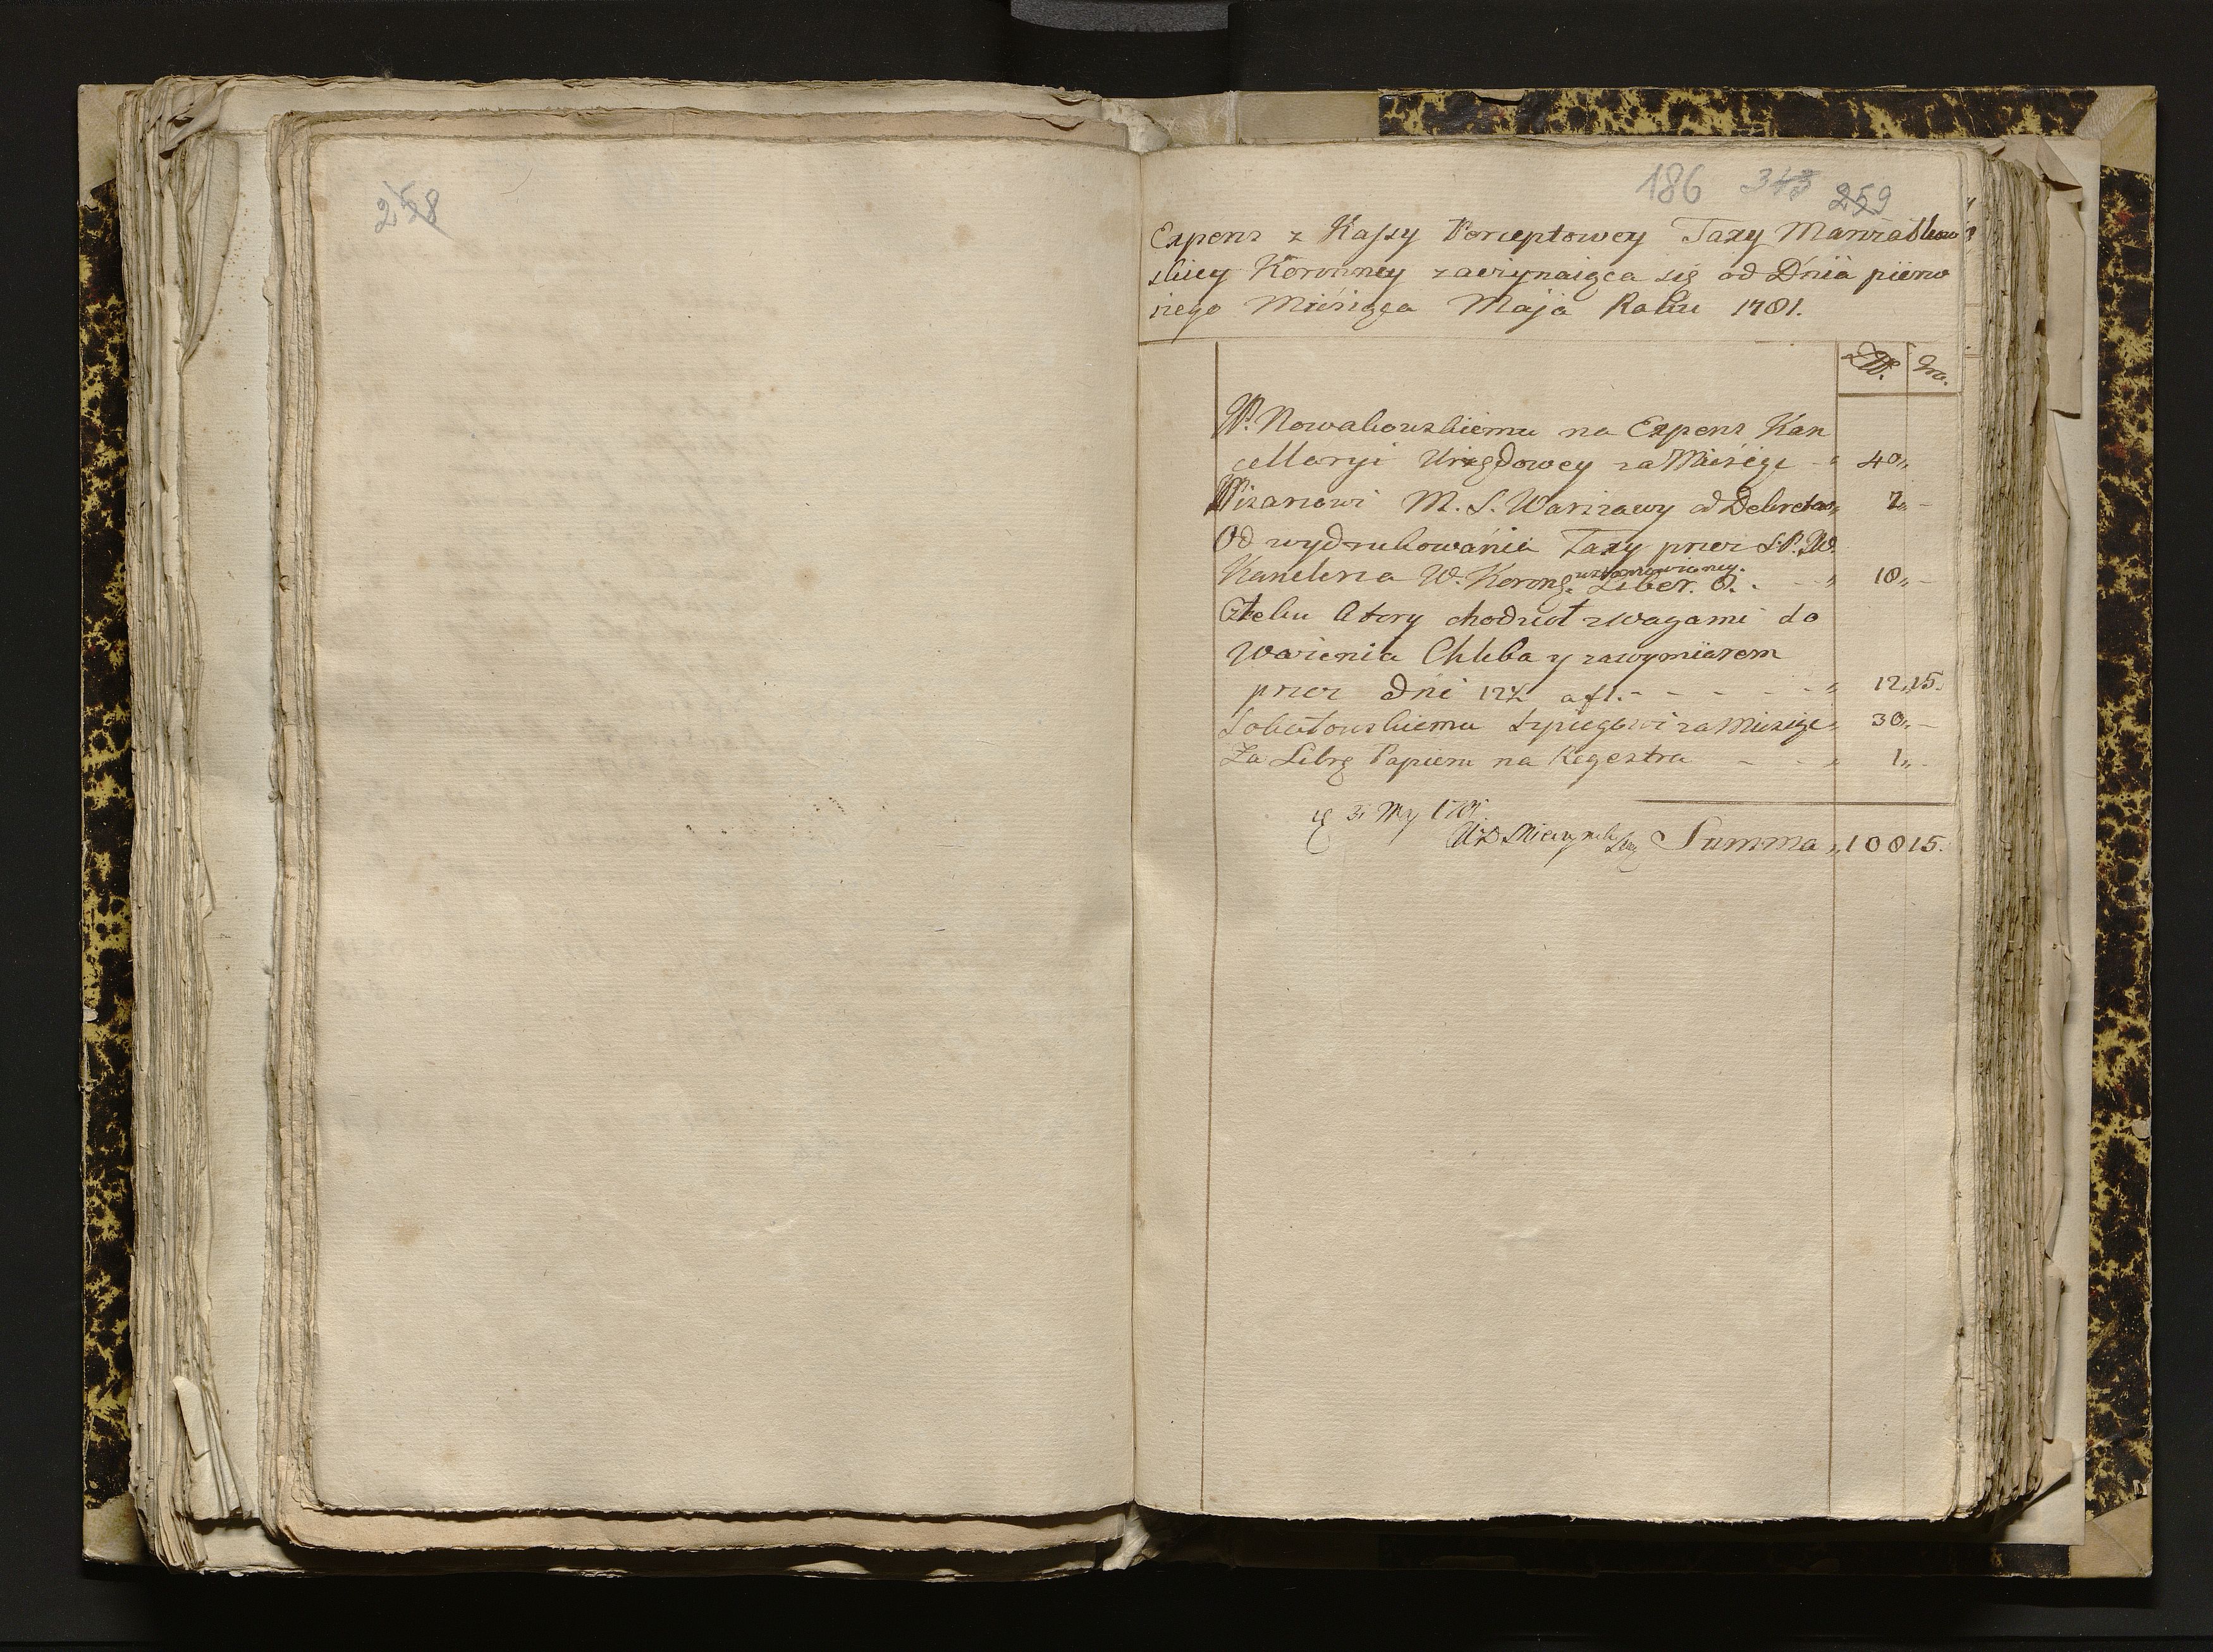 258
186 343 259
Expens z Kassy Perceptowey Taxy Marszałkow
skiey Koronney zaczynaiąca się od Dnia pierw
szego Miesiąca Maja Roku 1781.
Zł. Gro.
W. Nowakowskiemu na Expens Kan
cellaryi Urzędowey za Miesiąc - " 40,,
Pisarzowi M. S. Warszawy od Dekretów,, 7,, -
Od wydrukowania Taxy przez S.P. JW.
Kanclerza W. Koronỿ. ustanowioney.
Liber. 8. - - " 18,, -
Człeku ktory chodził z wagami do
Ważenia Chleba y za wymiarem
przez dni 12½ a fl. - - - - - " 12,,15.
Sobotowskiemu szpiegowi za Miesiąc,, 30,, -
Za Librę Papieru na Regestra - - - " 1,, -
31 May 1781.
Summa,, 108 15.